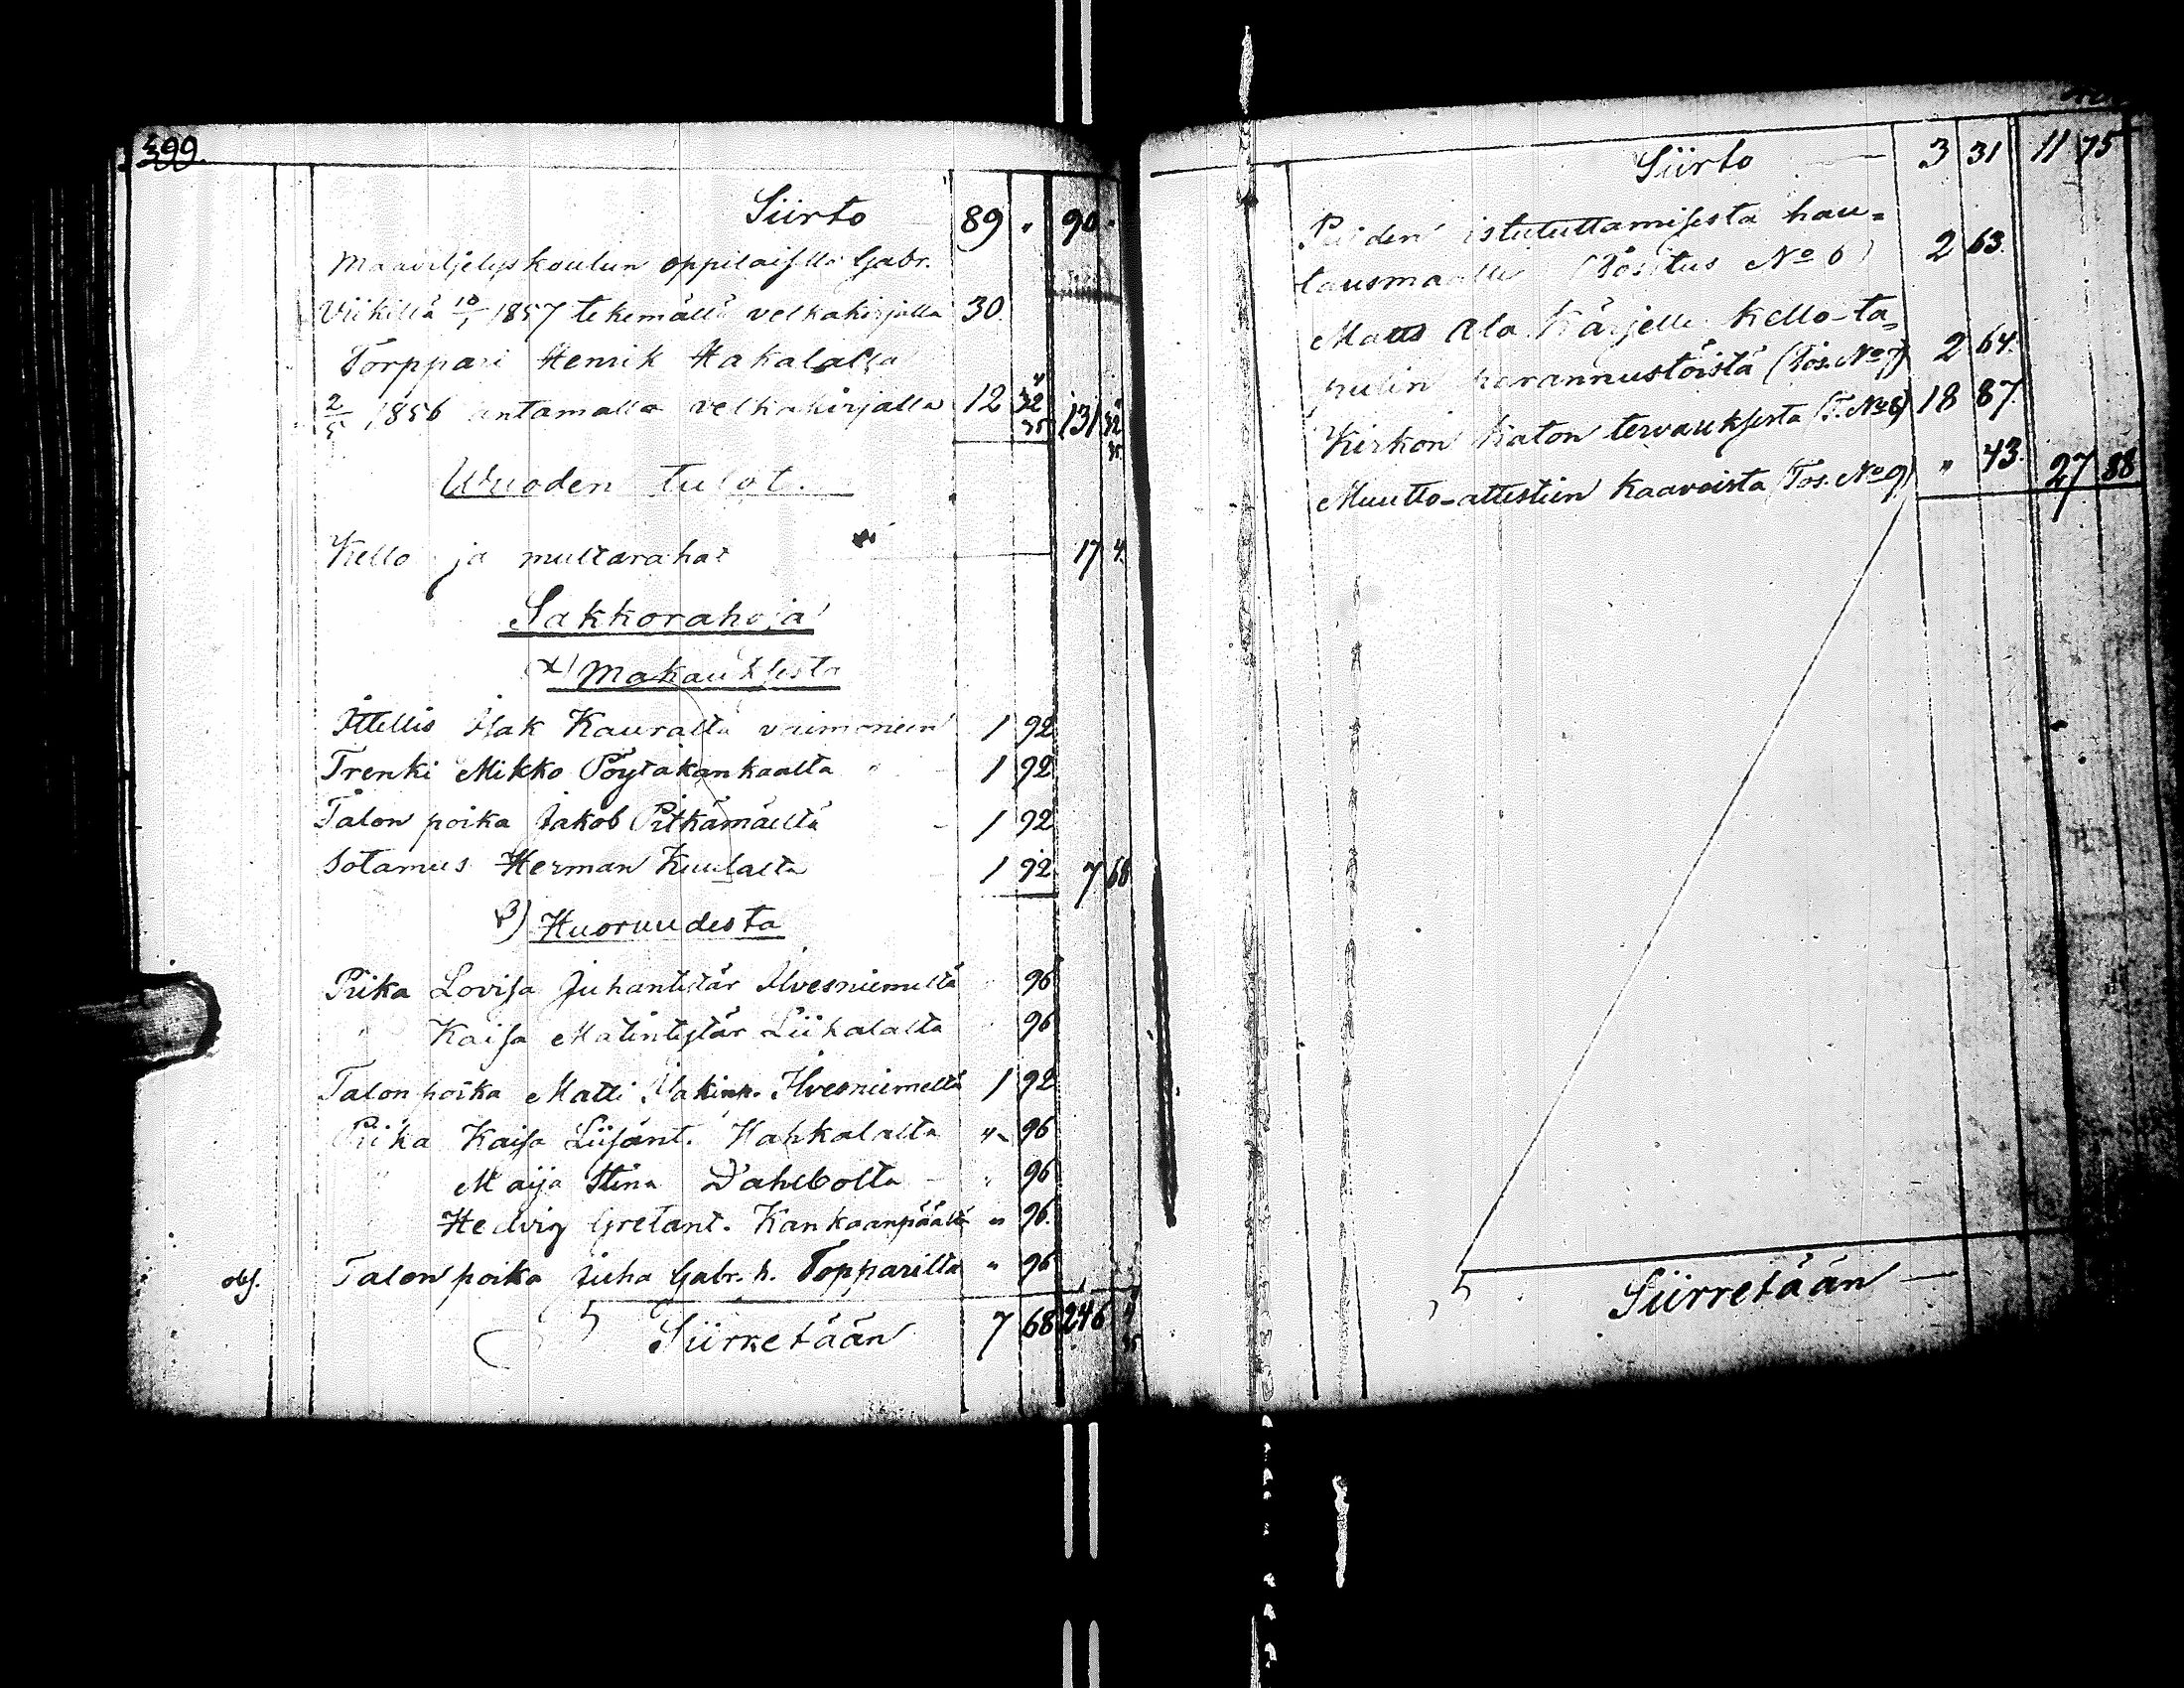 399.
Siirto 89 " 90 "
Maaviljelyskoulun oppilaisella Gabr.
Viikillä 10/1 1857 tekemällä velkakirjalla 30
Torppari Henrik Hakalalla
2/5 1856 antamalla velkakirjalla 12 32 131 32
Wuoden tulot.
Kello ja multarahat 17 4.
Sakkorahoja
α) Makauksesta
Ittellis Isak Kauralta vaimoneen 1 92
Trenki Mikko Pöytäkankaalta " 1 92
Talon poika Jakob Pitkämäeltä - 1 92
Sotamies Herman Kuulalta 1 92 7 68
β) Huoruudesta
Piika Lovisa Juhantytär Ilvesniemeltä " 96
" Kaisa Matintytär Liihalalta " 96
Talon poika Matti Isakinp. Ilvesniemeltä 1 92
Piika Kaisa Liisant. Hahkalalta " 96
" Maija Stina Dahlbolta - " 96
Hedvig Gretant. Kankaanpäältä " 96.
obs. Talon poika Juha Gabr. p. Topparilta " 96
Siirretään 7 68 246 4
Siirto 3 31 11 75
Puiden istututtamisesta hau=
tausmaalle (Tositus No 6) 2 63.
Matts Ala Kärjelle kello-ta=
pulin parannustöistä (Tos. No 7) 2 64.
Kirkon katon tervauksesta (T. No 8) 18 87.
Muutto-attestien kaavoista (Tos. No 9) " 43. 27 88
Siirretään